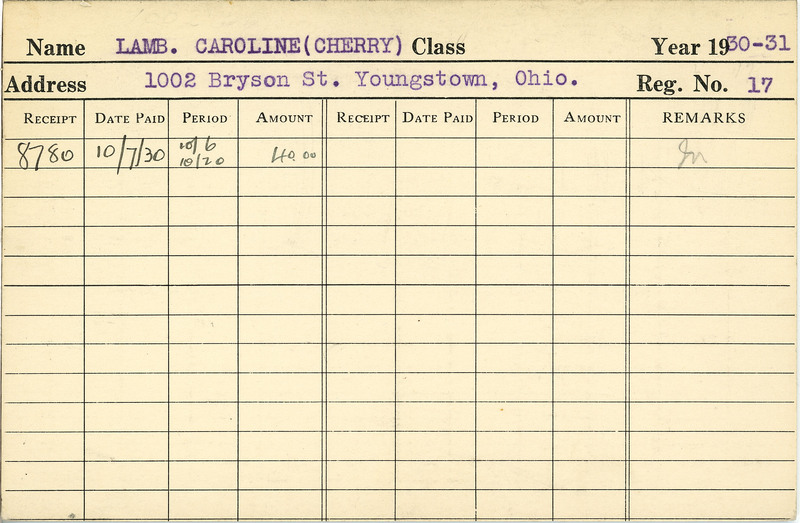 Name LAMB. CAROLINE(CHERRY) Class Year 1930-31
Address 1002 Bryson St. Youngstown, Ohio. Reg. No. 17
RECEIPT DATE PAID PERIOD AMOUNT RECEIPT DATE PAID PERIOD AMOUNT REMARKS
8780 10/7/30 10/6 40.00
10/20